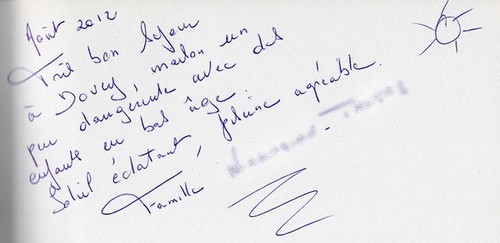 Août 2012
Très bon séjour
à Dovey, maison un
peu dangereuse avec des
enfants en bas âge.
Soleil éclatant, piscine agréable.
Famille